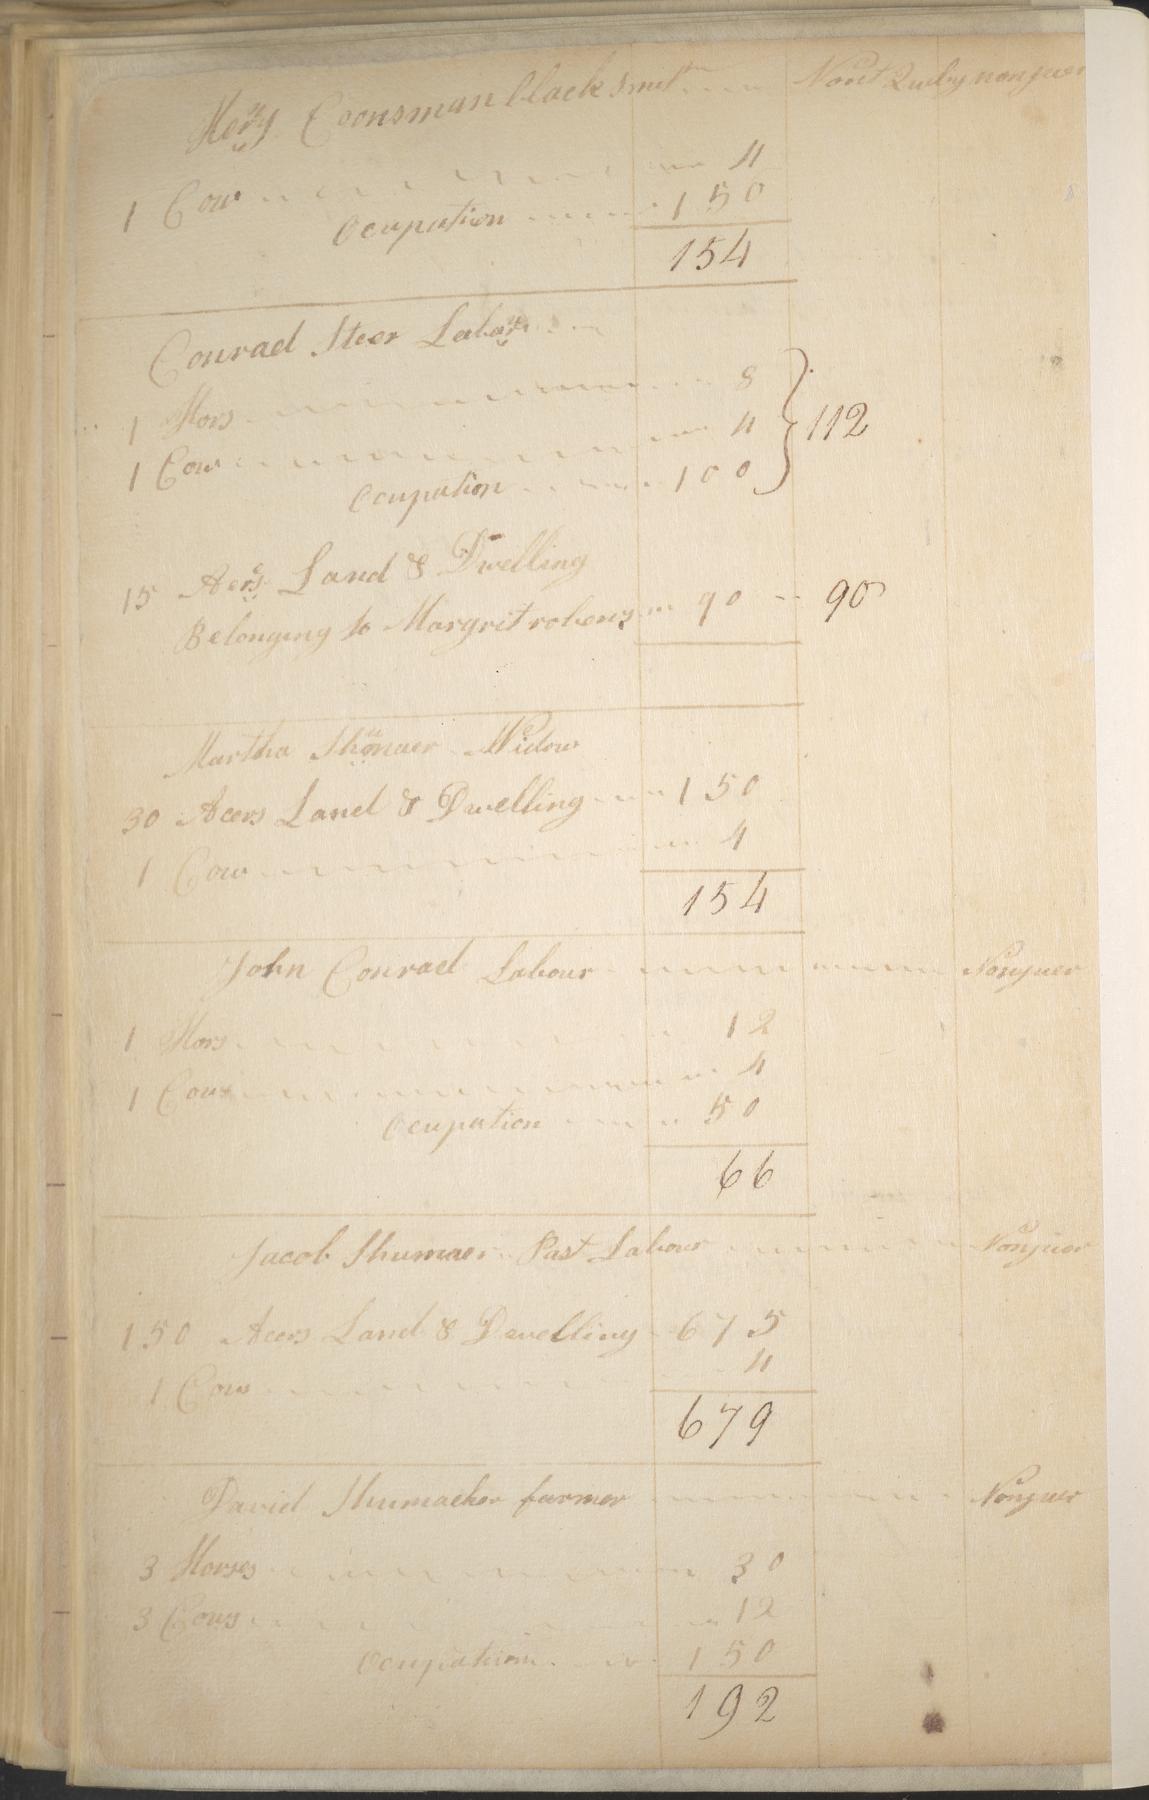 Henry Coonsman black smith
1 Cow 4
Ocupation 150
154
Conrad Steer Labour
1 Hors 8
1 Cow 4 112
Ocupation 100
15 Acers Land & Dwelling
Belonging to Margrit 90 90
Martha Widow
30 Acers Land & Dwelling 150
1 Cow 4
154
John Conrad Labour
1 Hors 12
1 Cow 4
Ocupation 50
66
Jacob Shumaer Past Labour
150 Acers Land & Dwelling 675
1 Cow 4
679
David Shumacher farmer
3 Horses 30
3 Cows 12
Ocupation 150
192